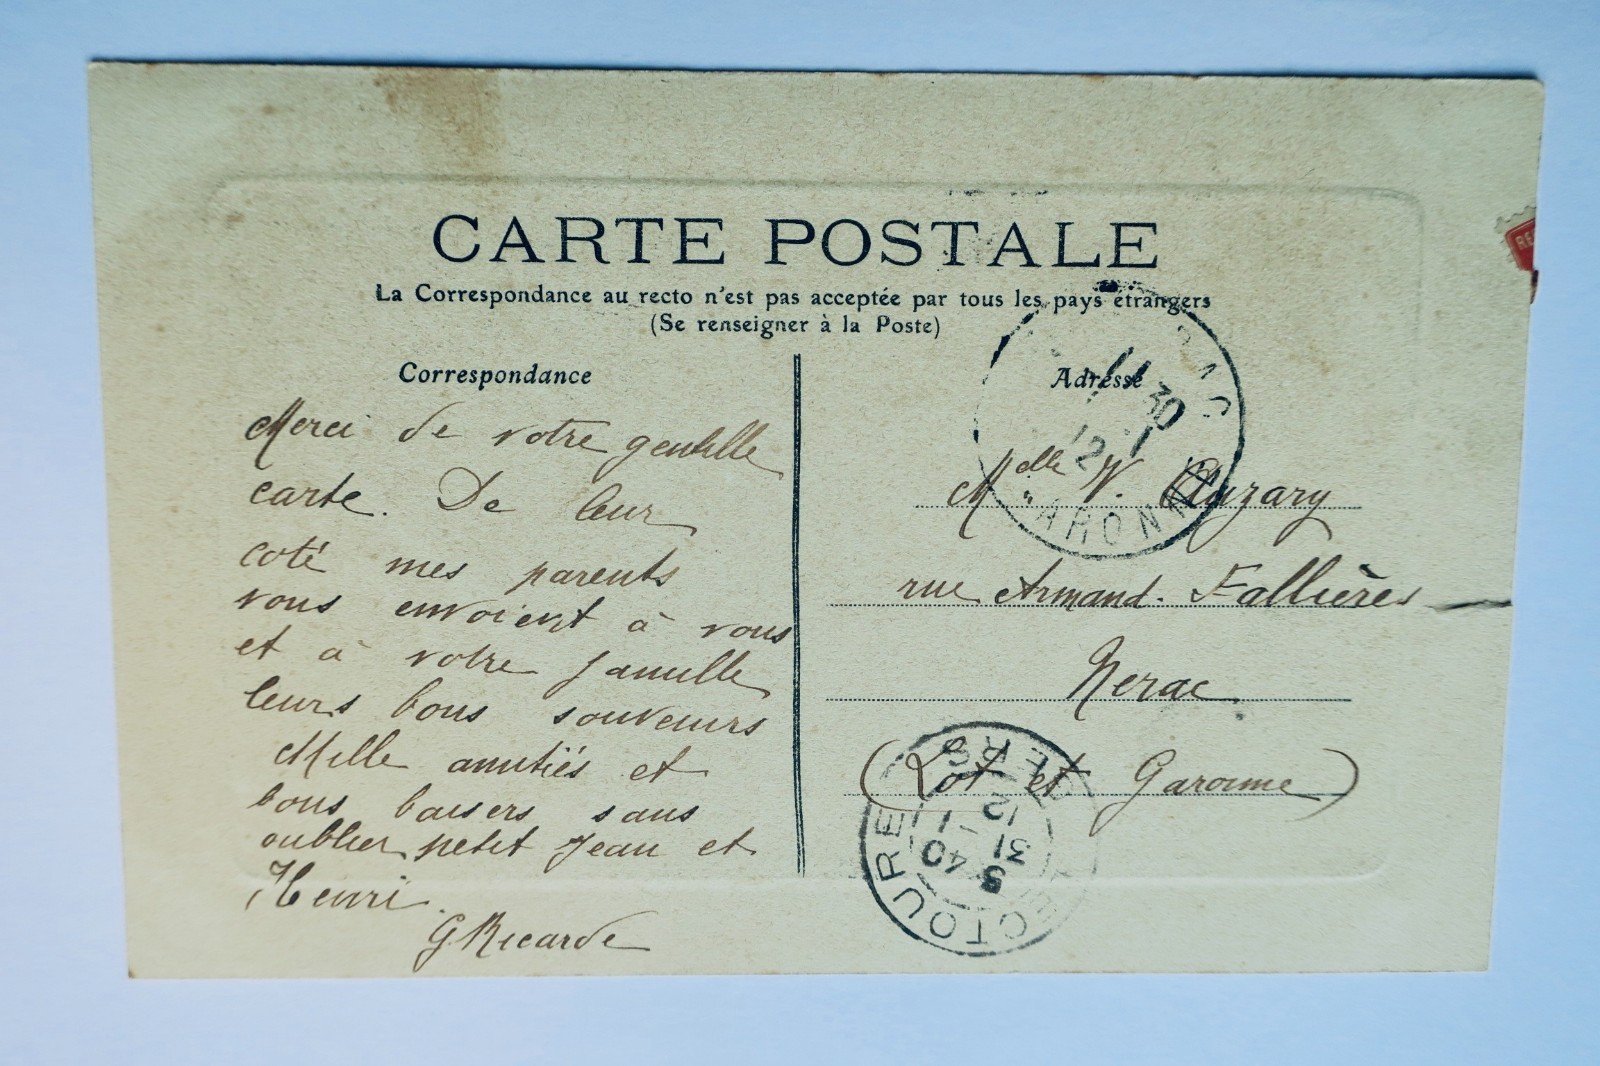 CARTE POSTALE
La Correspondance au recto n'est pas acceptée par tous les pays étrangers
(Se renseigner à la Poste)
Correspondance
Merci de votre gentille
carte. De leur
coté mes parents
vous envoient à vous
et à votre famille
leurs bons souvenirs
Mille amitiés et
bons baisers sans
oublier petit Jean et
Henri.
G Ricarde
Adresse
Melle V.
rue Armand. Fallières
Nerac
(Lot et Garonne)
RAC
11 30
1
12
ARONNE
LECTOURE
GERS
5 40
31
1
12
RE